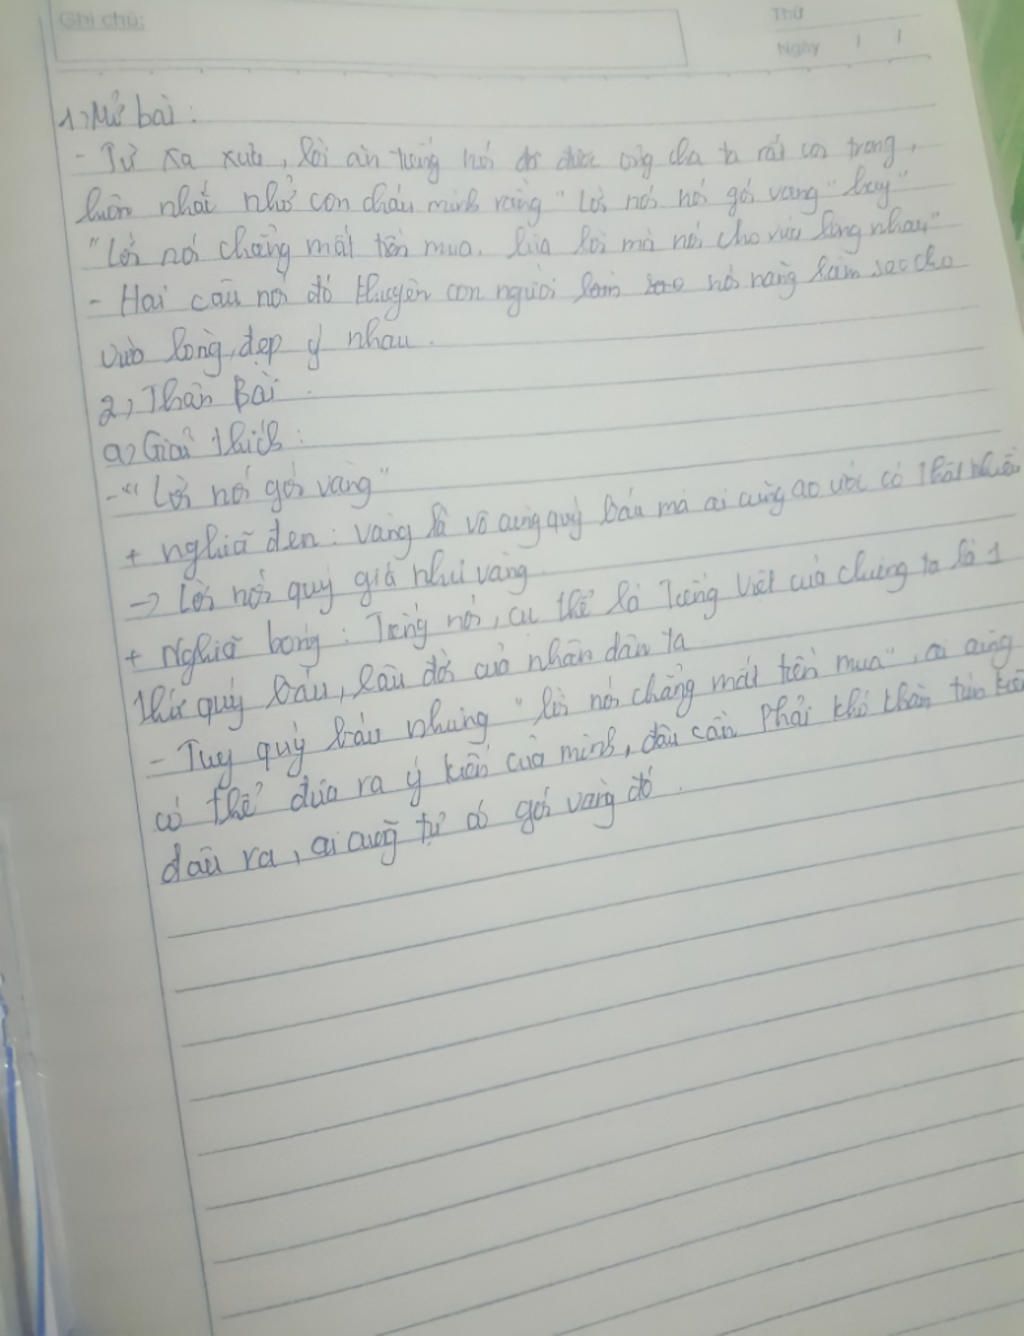 Ghi chú:
Thứ
Ngày / /
1, Mở bài:
- Từ xa xưa, lời ăn tiếng nói được ông cha ta rất coi trọng,
luôn nhắc nhở con cháu mình rằng "Lời nói nói gói vàng" hay
"Lời nói chẳng mất tiền mua. Lựa lời mà nói cho vừa lòng nhau"
- Hai câu nói đó khuyên con người nói năng làm sao cho
vừa lòng, đẹp ý nhau.
2, Thân Bài
a, Giải thích:
- "Lời nói gói vàng"
+ nghĩa đen: vàng là vô cùng quý báu mà ai cũng ao ước có thật nhiều
-> Lời nói quý giá như vàng
+ Nghĩa bóng: Tiếng nói, cụ thể là Tiếng Việt của chúng ta là 1
thứ quý báu, lâu đời của nhân dân ta
- Tuy quý báu nhưng "lời nói chẳng mất tiền mua", ai cũng
có thể đưa ra ý kiến của mình, đâu cần phải khó khăn tìm kiếm
đâu ra, ai cũng tự có gói vàng đó.